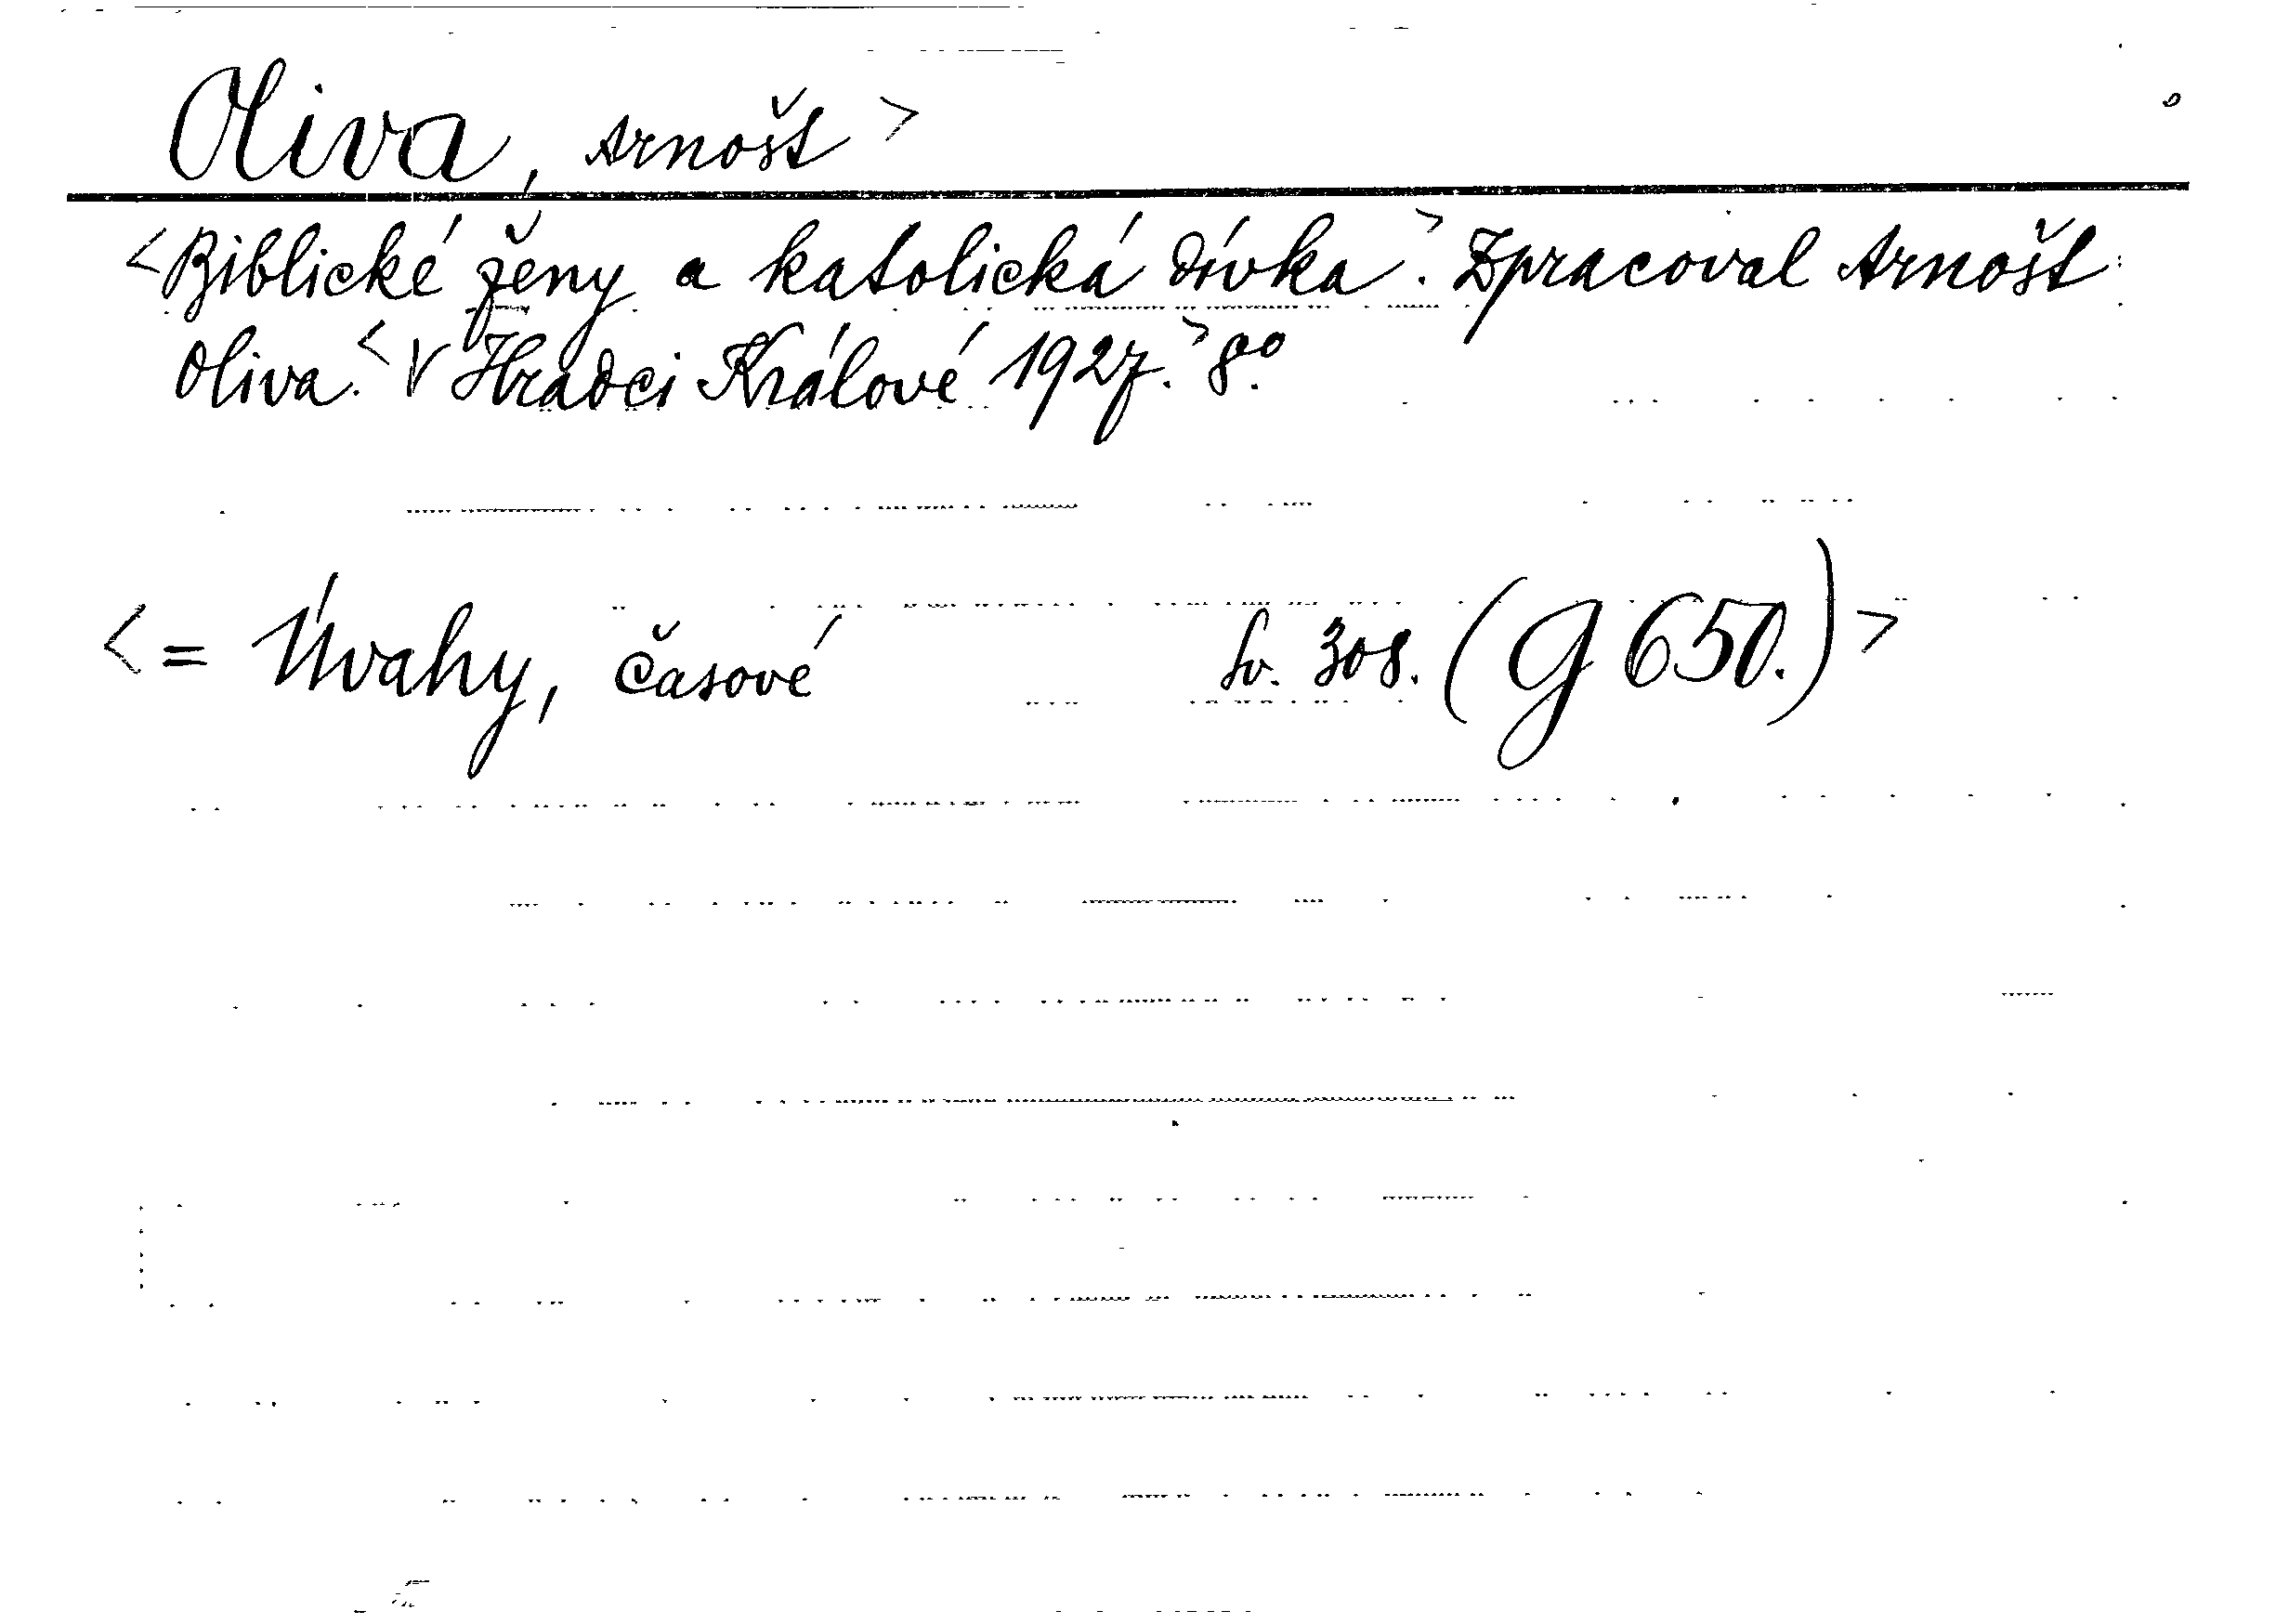 Oliva, Arnošt >
<Biblické ženy a katolická dívka.> Zpracoval Arnošt
Oliva. <V Hradci Králové 1927.> 8º.
<= Úvahy, časové sv. 308. (G 650.)>